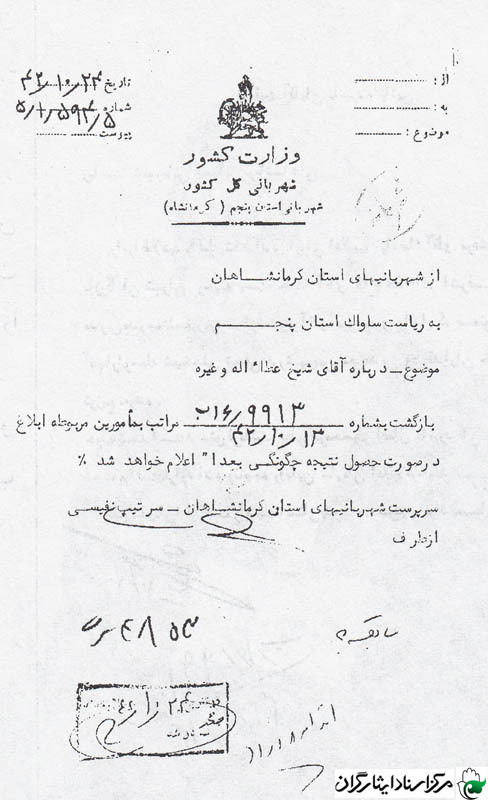 از :
به :
موضوع :
تاریخ ۴۲/۱۰/۲۴
شماره
پیوست
وزارت کشور
شهربانی کل کشور
شهربانی استان پنجم ( کرمانشاه )
از شهربانیهای استان کرمانشاهان
به ریاست ساواک استان پنجم
موضوع ــ درباره آقای شیخ عطاءاله و غیره
بازگشت بشماره ۹۹۱۳/۲۱۶ مراتب بمأمورین مربوطه ابلاغ
۴۲/۱۰/۱۳
درصورت حصول نتیجه چگونگی بعدا" اعلام خواهد شد ٪
سرپرست شهربانیهای استان کرمانشاهان ــ سرتیپ نفیسی
ازطرف
سابقه
مرکز اسناد ایثارگران